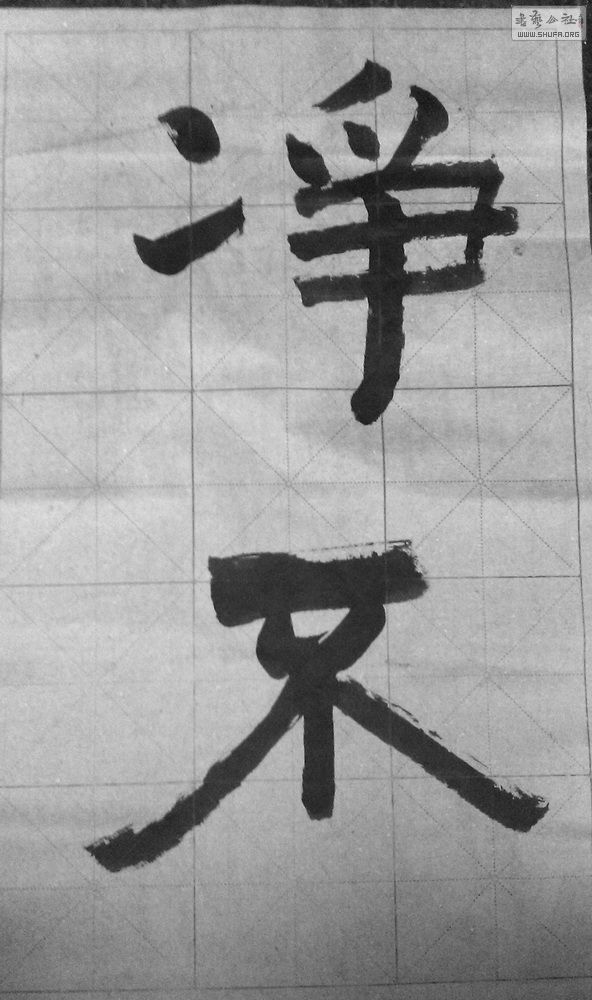 書藝公社
WWW.SHUFA.ORG
凈
不